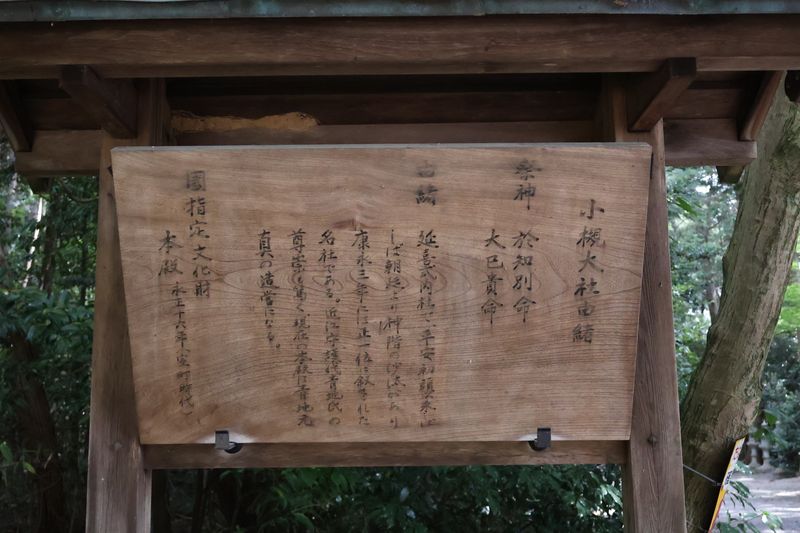 小槻大社由緒
祭神　於知別命
大己貴命
由緒　延喜式内社で平安初頭来しば
しば朝廷より神階の沙汰があり
康永三年には正一位に叙された
名社である。近江守護代青地氏の
尊崇も篤く現在の本殿は青地元
真の造営になる。
国指定文化財
本殿　永正十六年(室町時代)